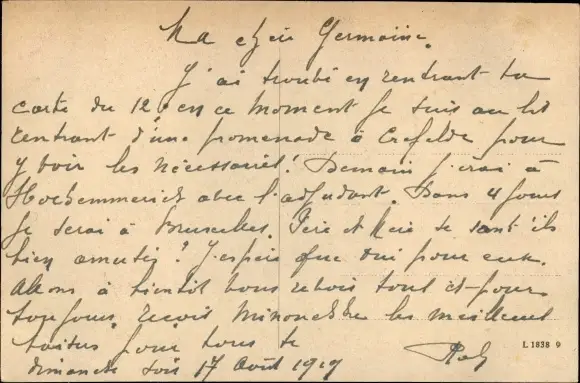 Ma chère Germaine.
J'ai trouvé en rentrant ta
carte du 12, en ce moment je suis au lit
rentrant d'une promenade à Crefelde pour
y voir les nécessaire! Demain j'irai à
Hochemmerich avec l'adjudant. Dans 4 jours
je serai à Bruxelles. Père et Mère se sont ils
bien amusés? J'espère que oui pour eux.
Allons à bientôt vous revoir tout et pour
toujours, reçois Minouche les meilleurs
pour tous te
dimanche soir 17 Août 1919
L 1838 9